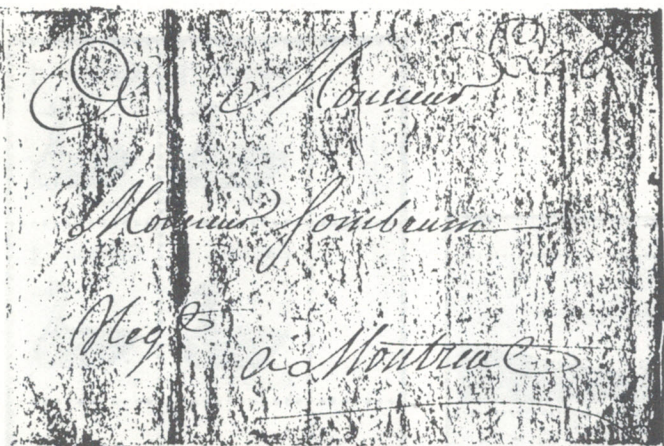 A Monsieur
Monsieur Sombrun
Negt
a Montreal